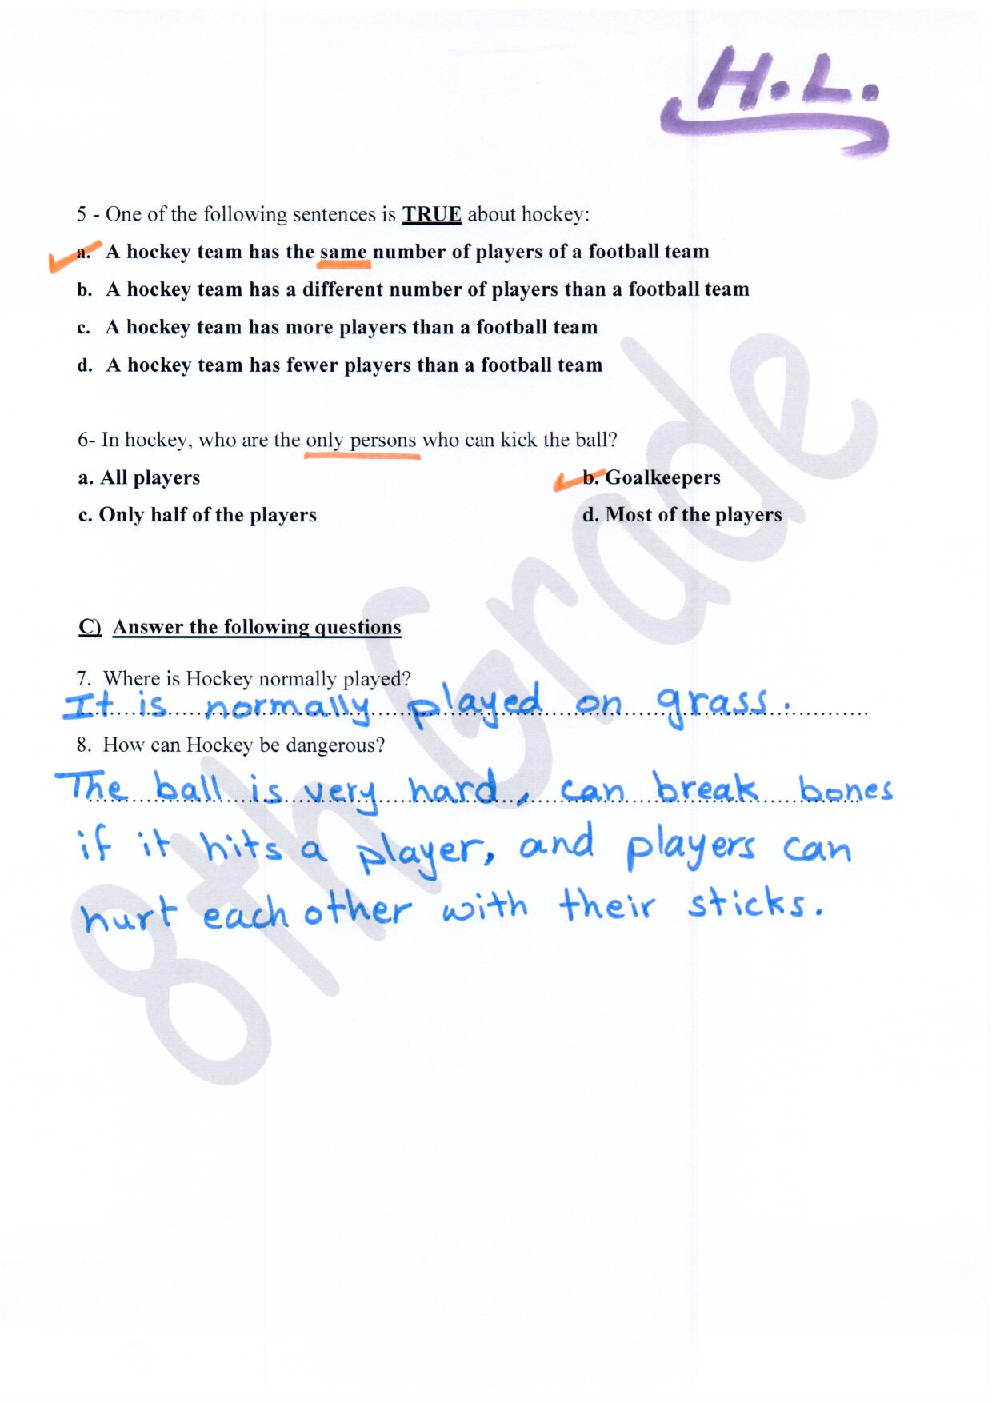 H.L.
5 - One of the following sentences is TRUE about hockey:
a. A hockey team has the same number of players of a football team
b. A hockey team has a different number of players than a football team
c. A hockey team has more players than a football team
d. A hockey team has fewer players than a football team
6- In hockey, who are the only persons who can kick the ball?
a. All players b. Goalkeepers
c. Only half of the players d. Most of the players
C) Answer the following questions
7. Where is Hockey normally played?
It is normally played on grass.
8. How can Hockey be dangerous?
The ball is very hard, can break bones
if it hits a player, and players can
hurt each other with their sticks.
8th Grade